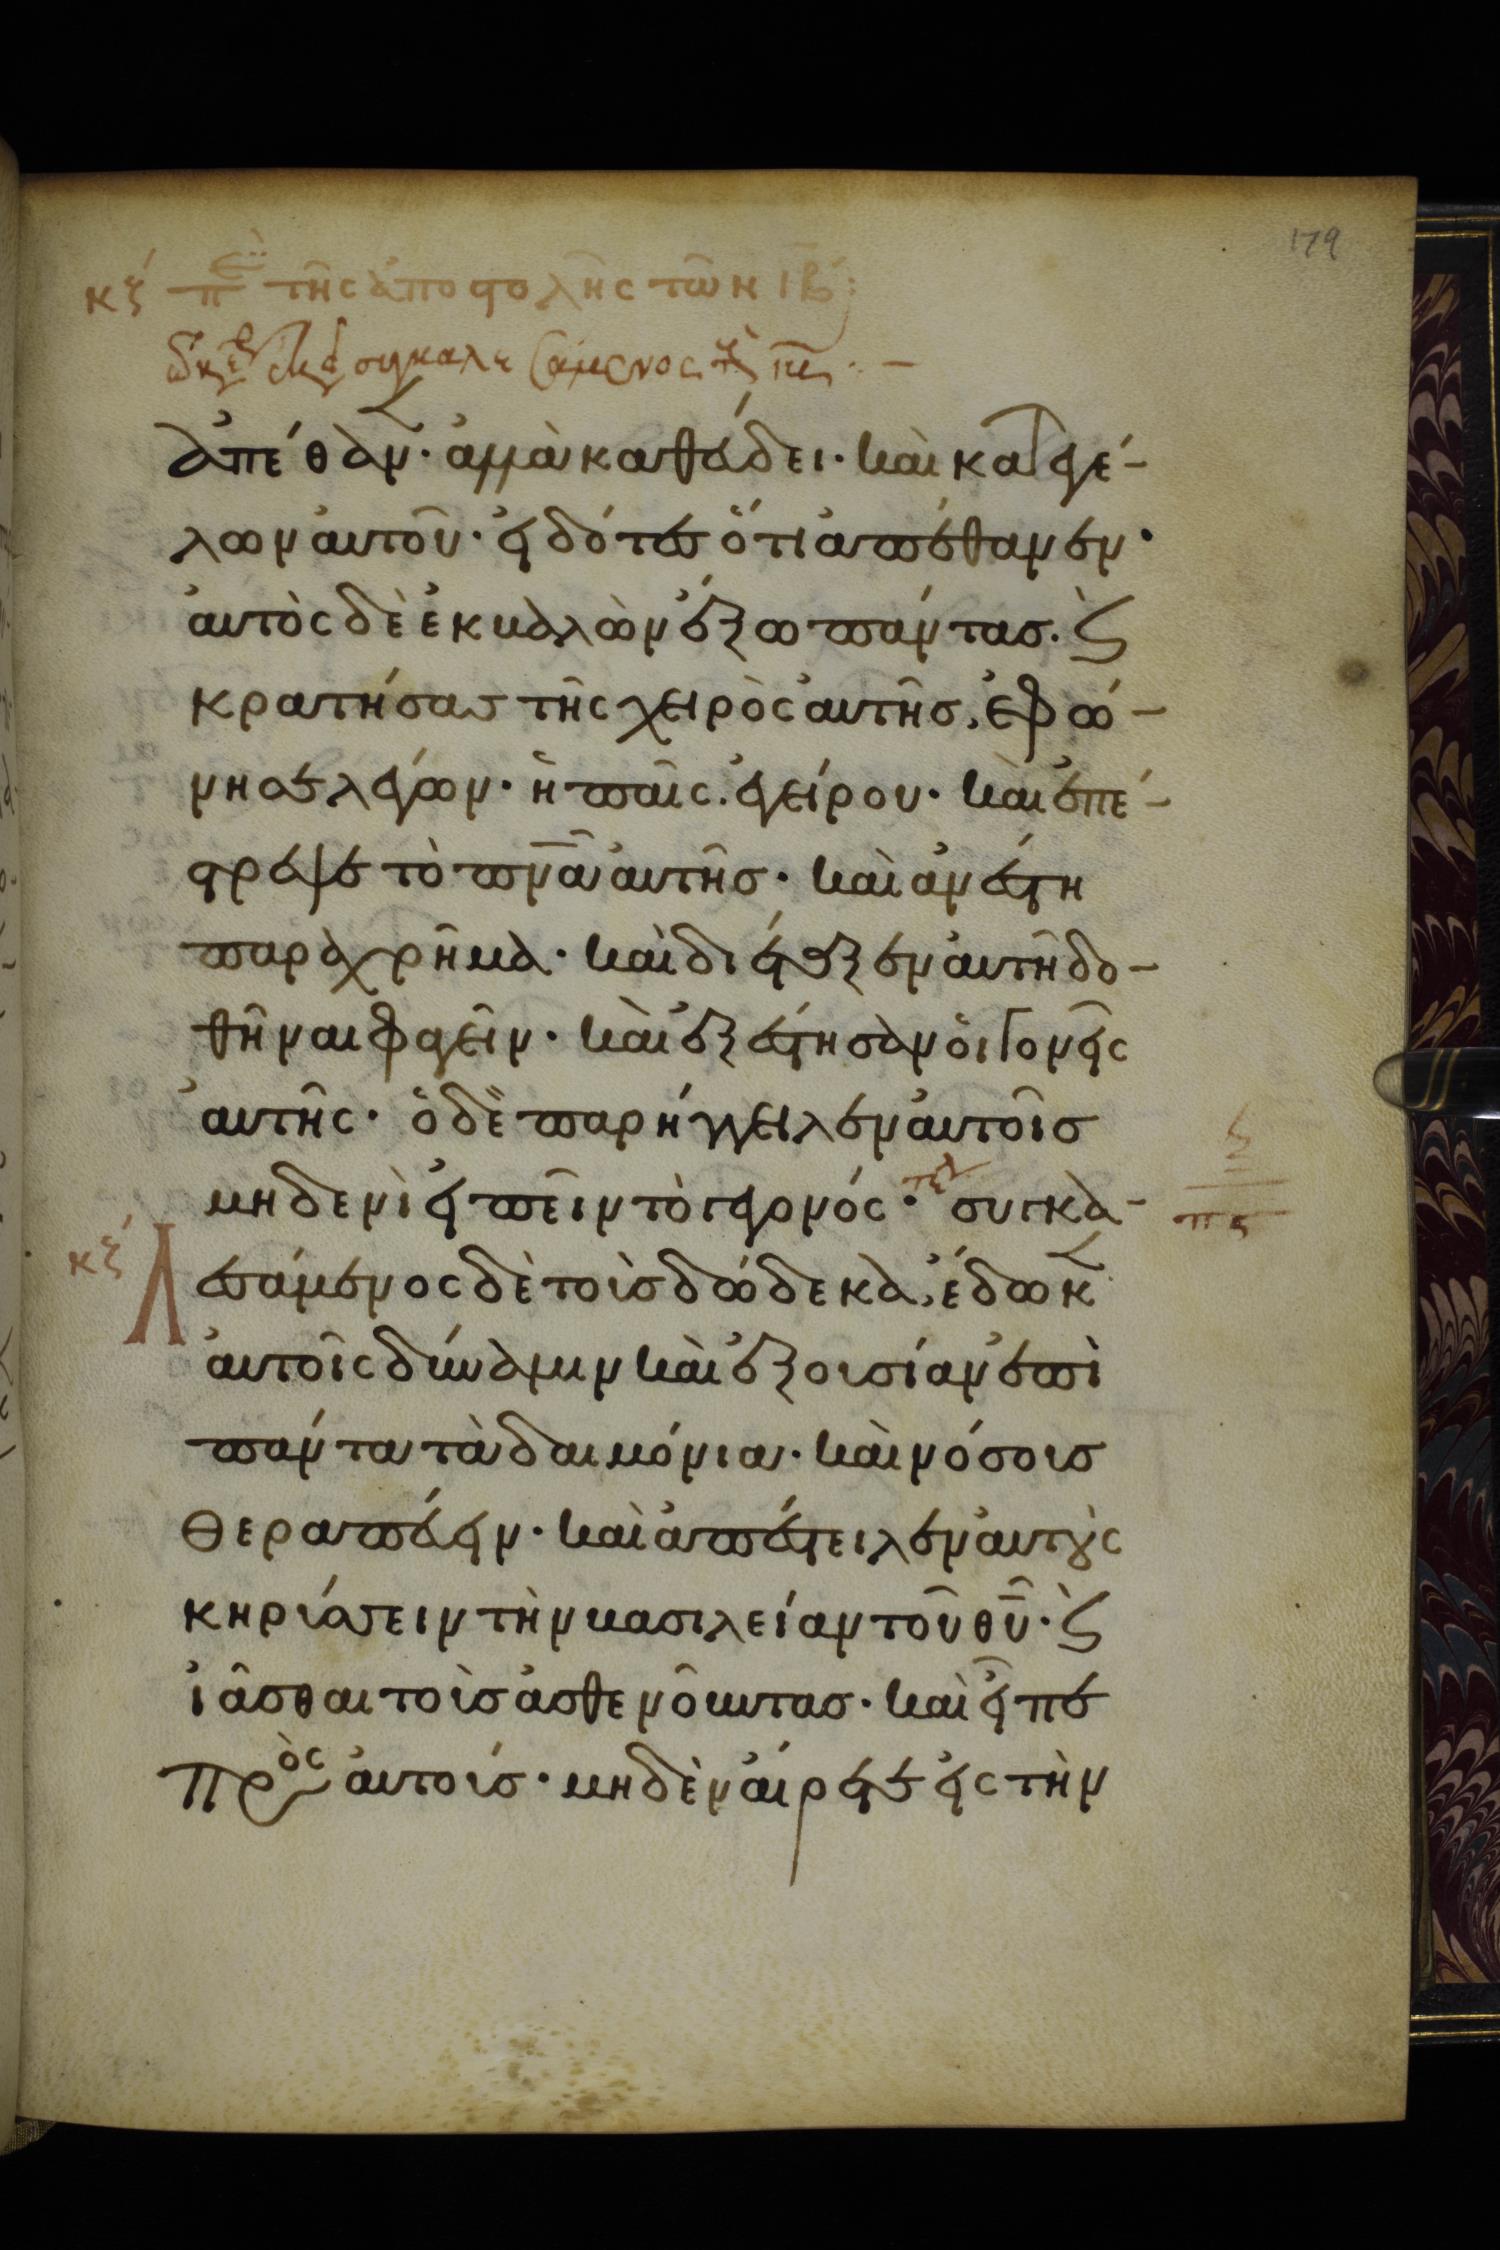 179
κζ πε τῆς ἀποστολῆς τῶν ιβ:
συγκαλεσάμενος
ἀπέθαν· ἀλλὰ καθεύδει· καὶ κατεγέ-
λων αὐτοῦ· εἰδότες ὅτι ἀπέθανεν·
αὐτὸς δὲ ἐκβαλὼν ἔξω πάντας· ϗ
κρατήσας τῆς χειρὸς αὐτῆς, ἐφώ-
νησε λέγων· ἡ παῖς ἐγείρου· καὶ ἐπέ-
στρεψε τὸ πνᾶ αὐτῆς· καὶ ἀνέστη
παραχρῆμα· καὶ διέταξεν αὐτῆ δο-
θῆναι φαγεῖν· καὶ ἐξέστησαν οἱ γονεῖς
αὐτῆς· ὁ δὲ παρήγγειλεν αὐτοῖς
μηδενὶ εἰπεῖν τὸ γεγονός· τελ συγκα-
κζ λεσάμενος δὲ τοὺς δώδεκα, ἔδωκ
αὐτοῖς δύναμιν καὶ ἐξουσίαν ἐπὶ
πάντα τὰ δαιμόνια· καὶ νόσους
θεραπεύειν· καὶ ἀπέστειλεν αὐτοὺς
κηρύσσειν τὴν βασιλείαν τοῦ θῦ· ϗ
ἰᾶσθαι τοὺς ἀσθενοῦντας· καὶ εἶπε
πρὸς αὐτούς· μηδὲν αἴρετε εἰς τὴν